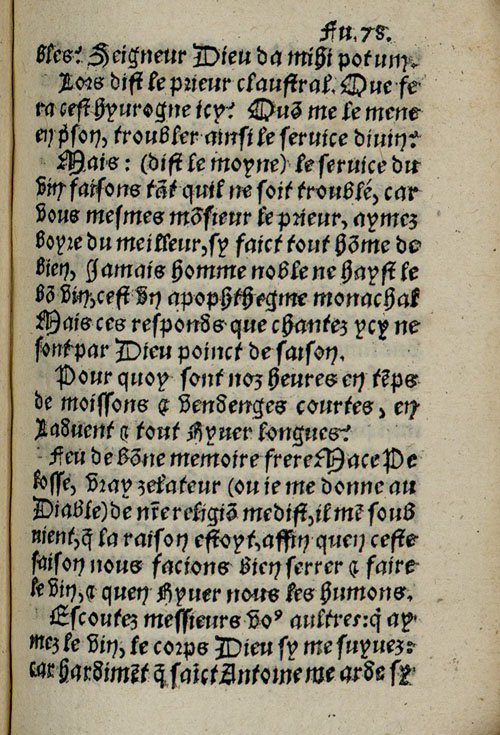 Fu. 78.
bles? Seigneur Dieu da mihi potum.
Lors dist le prieur claustral. Que fe
ra cest hyurogne icy? Quõ me le mene
en p̃son, troubler ainsi le service divin?
Mais: (dist le moyne) le service du
vin faisons tãt quil ne soit troublé, car
vous mesmes mõsieur le prieur, aymez
boyre du meilleur, sy faict tout hõme de
bien, Jamais homme noble ne hayst le
bõ vin, cest vn apophthegme monachal
Mais ces responds que chantez ycy ne
sont par Dieu poinct de saison.
Pour quoy sont noz heures en tẽps
de moissons ⁊ vendenges courtes, en
Laduent ⁊ tout Hyuer longues?
Feu de bõne memoire frere Mace Pe
losse, vray zelateur (ou ie me donne au
Diable) de nr̃e religiõ me dist, il mẽ soub
nient, q̃ la raison estoyt, affin quen ceste
saison nous facions bien serrer ⁊ faire
le vin, ⁊ quen Hyuer nous les humons.
Escoutez messieurs voꝰ aultres: q̃ ay
mez le vin, le corps Dieu sy me suyuez:
car hardimẽt q̃ saĩct Antoine me arde sy